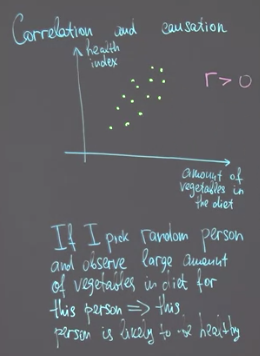 Correlation and causation
health
index
r > 0
amount of
vegetables in
the diet
If I pick random person
and observe large amount
of vegetables in diet for
this person ⇒ this
person is likely to healthy